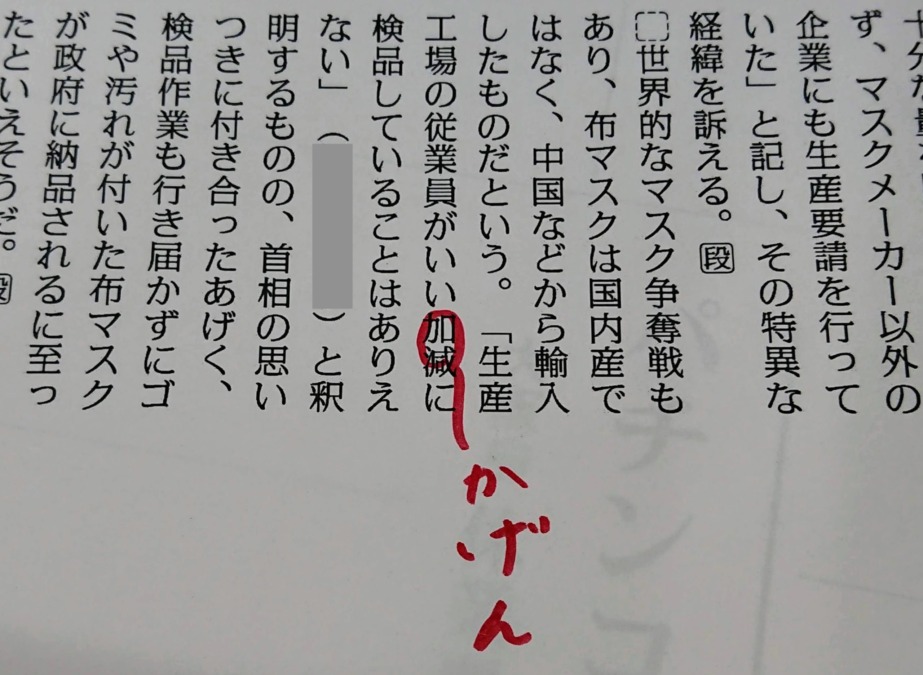 十分な量
ず、マスクメーカー以外の
企業にも生産要請を行って
いた」と記し、その特異な
経緯を訴える。段
世界的なマスク争奪戦も
あり、布マスクは国内産で
はなく、中国などから輸入
したものだという。「生産
工場の従業員がいい加減に
検品していることはありえ
ない」（）と釈
明するものの、首相の思い
つきに付き合ったあげく、
検品作業も行き届かずにゴ
ミや汚れが付いた布マスク
が政府に納品されるに至っ
たといえそうだ。段
かげん
パチンコ